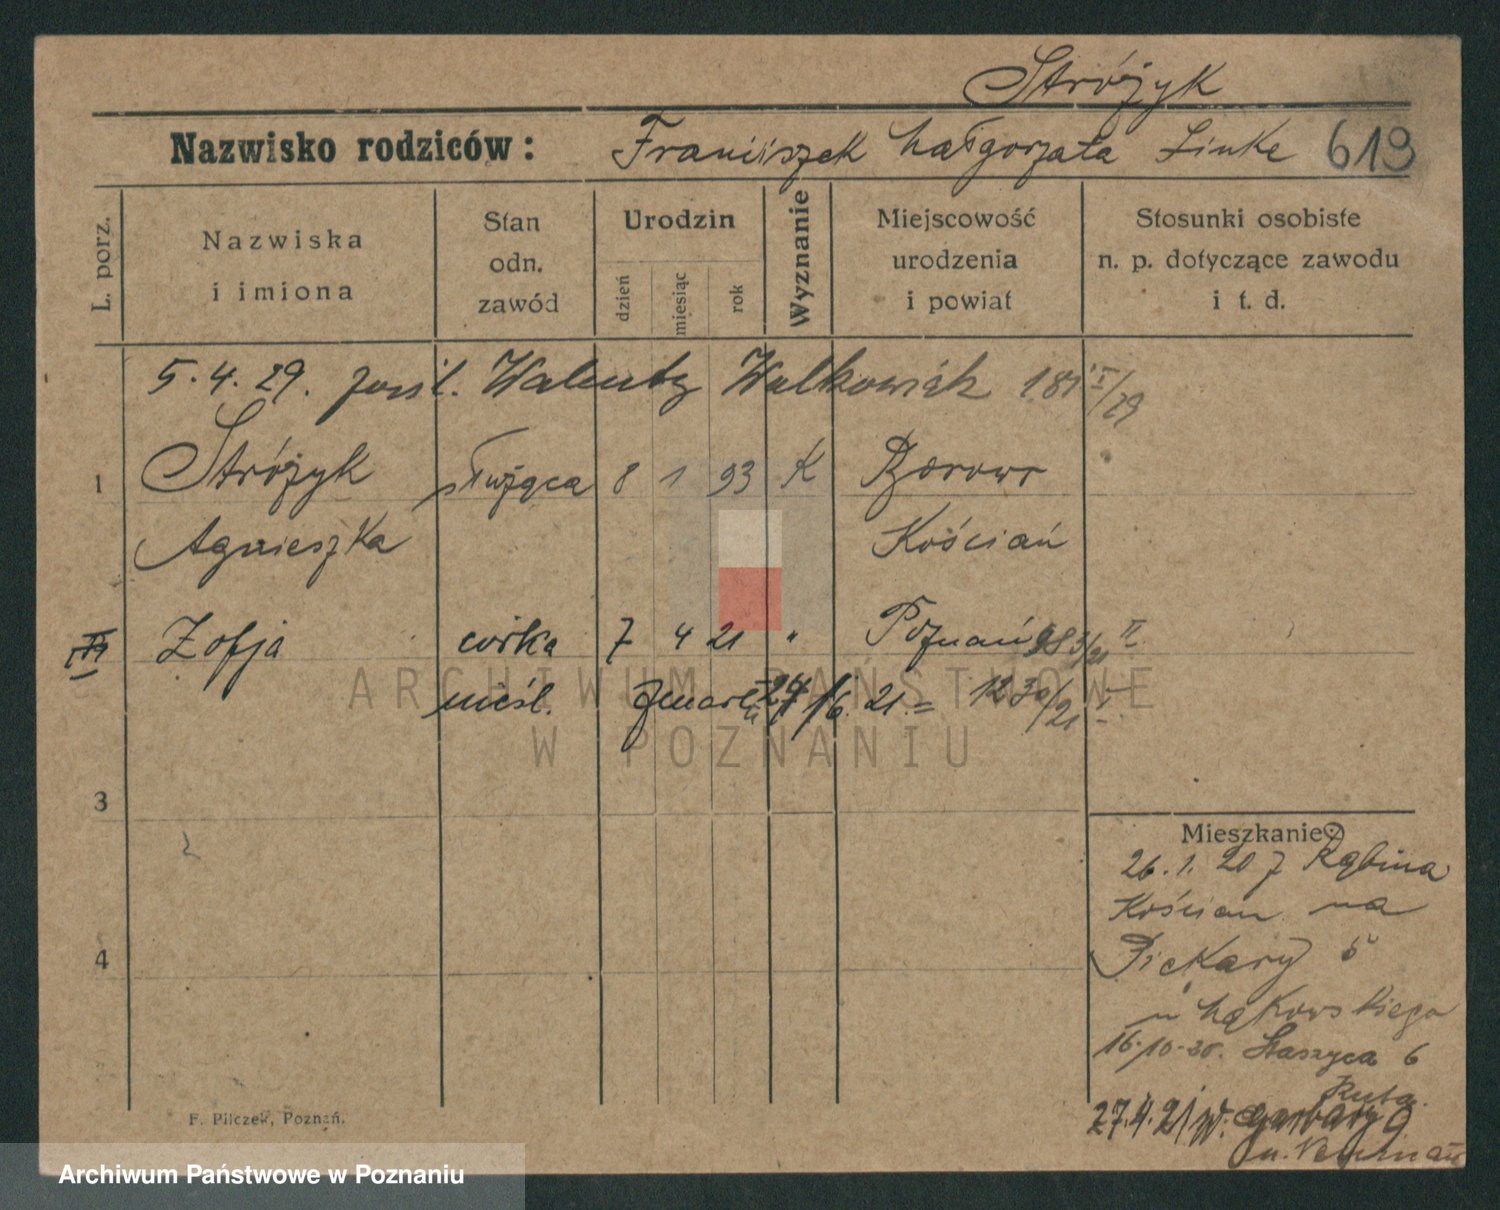 Stróżyk
Nazwisko rodziców: Franciszek Małgorzata Linke 619
L. porz.
Nazwiska i imiona
Stan odn. zawód
Urodzin
dzień
miesiąc
rok
Wyznanie
Miejscowość urodzenia i powiat
Stosunki osobiste n. p. dotyczące zawodu i t. d.
5. 4. 29. pośl. Walenty Walkowiak
1 Stróżyk służąca 8 1 93 K
Agnieszka Kościan
Zofja córka 7 4 21 " Poznań
nieśl. zmarła 21.
3
4
Mieszkanie:
26. 1. 20 z Rąbina
Kościan na
Piekary 5
u Mąkowskiego
16.10.20. Staszyca 6
27.4.21
F. Pilczek, Poznań.
ARCHIWUM PAŃSTWOWE
W POZNANIU
Archiwum Państwowe w Poznaniu